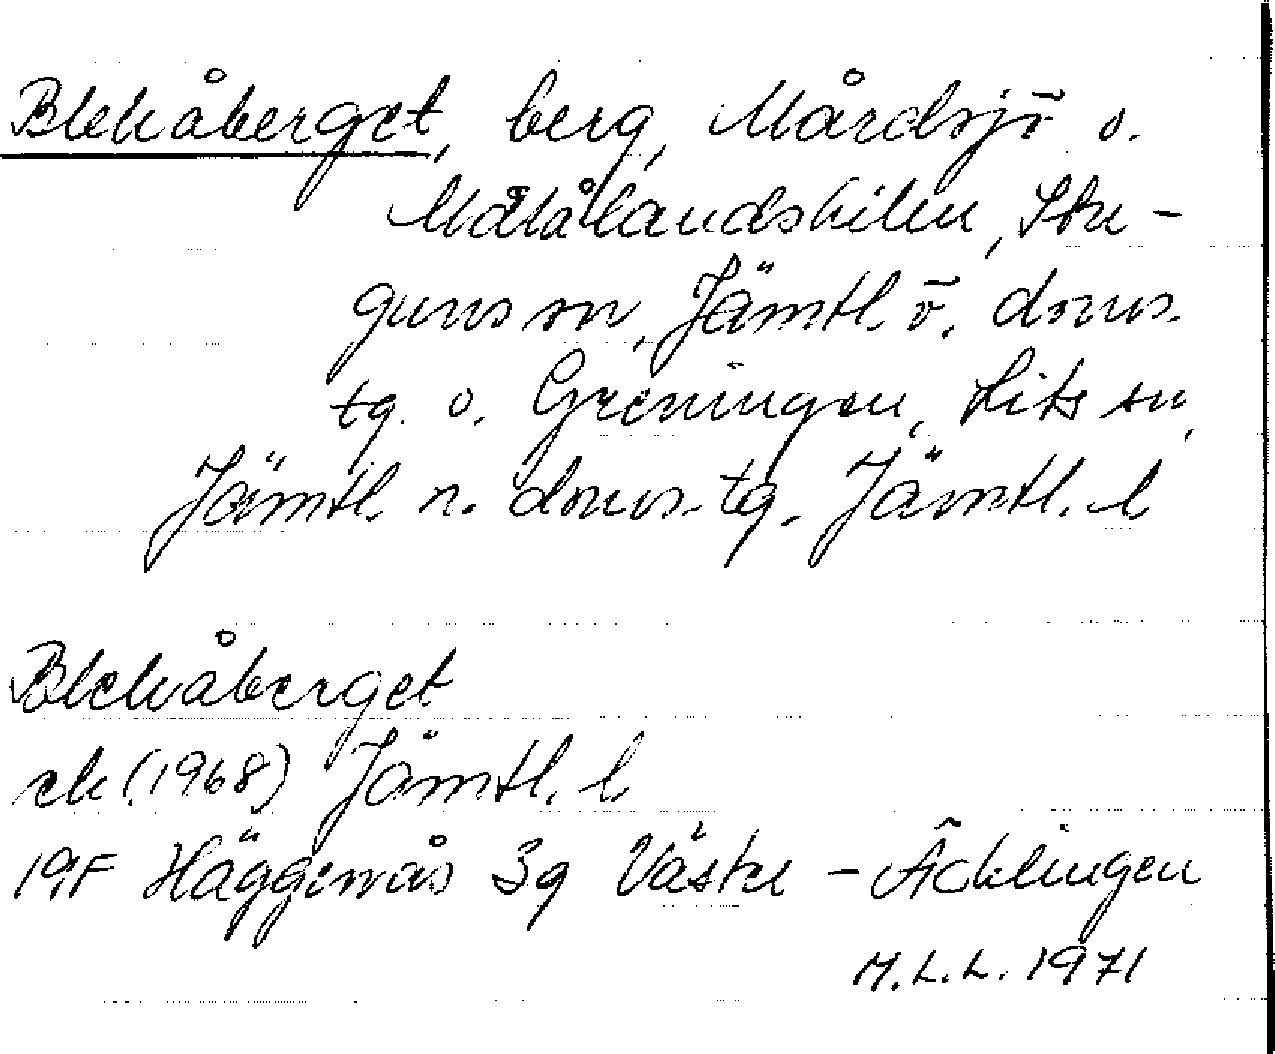 Blekåberget, berg, Mårdsjö o.
Mälålandskilen, Stu-
guns sn, Jämtl. ö. doms.
tg. o. Greningen, Lits sn,
Jämtl. n. doms. tg. Jämtl. l
Blekåberget
ek (1968) Jämtl. l
19F Häggenås 3g Västu - Äcklingen
M.L.L. 1971